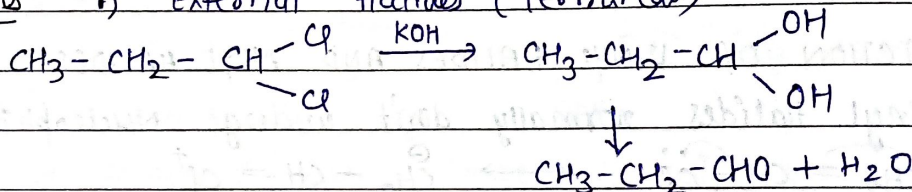 CH3 - CH2 - CH - Cl - Cl KOH → CH3 - CH2 - CH - OH - OH
↓
CH3 - CH2 - CHO + H2O